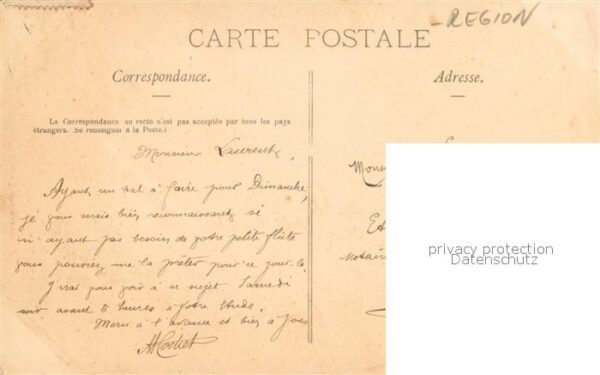 - REGION
CARTE POSTALE
Correspondance.
Adresse.
La Correspondance au recto n'est pas acceptée par tous les pays
étrangers. Se renseigner à la Poste.)
Monsieur Laurent,
Ayant un bal à faire pour Dimanche,
je vous serais bien reconnaissant si
n'ayant pas besoin de votre petite flûte
vous pouviez me la prêter pour ce jour là.
J'irai vous voir à ce sujet Samedi
soir avant 5 heures à votre Etude.
Merci à l'avance et bien à vous
Mons
Et
Notaire
privacy protection
Datenschutz